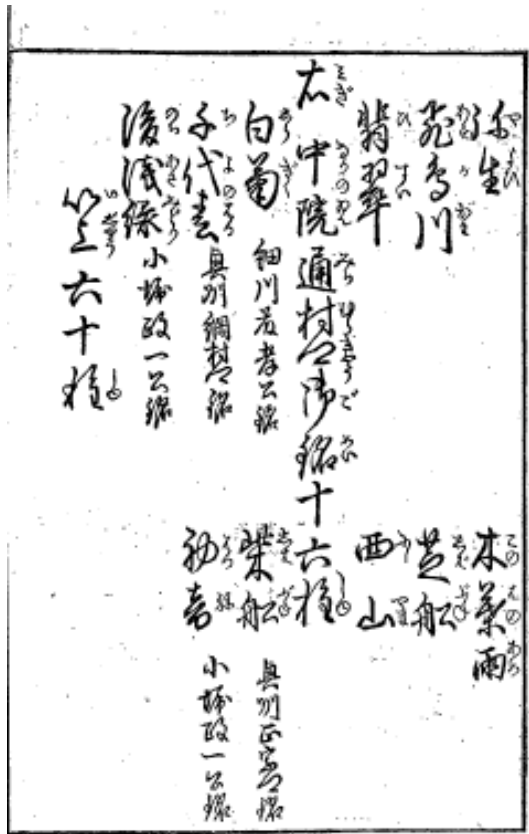 弥生 木葉雨
飛鳥川 芝船
翡翠 西山
右中院通村卿御銘十六種
白菊 細川 孝公銘 柴船 奥州正宗卿銘
千代春 奥州綱村卿銘 初音 小堀政一公銘
後浅緑 小堀政一公銘
以上六十種